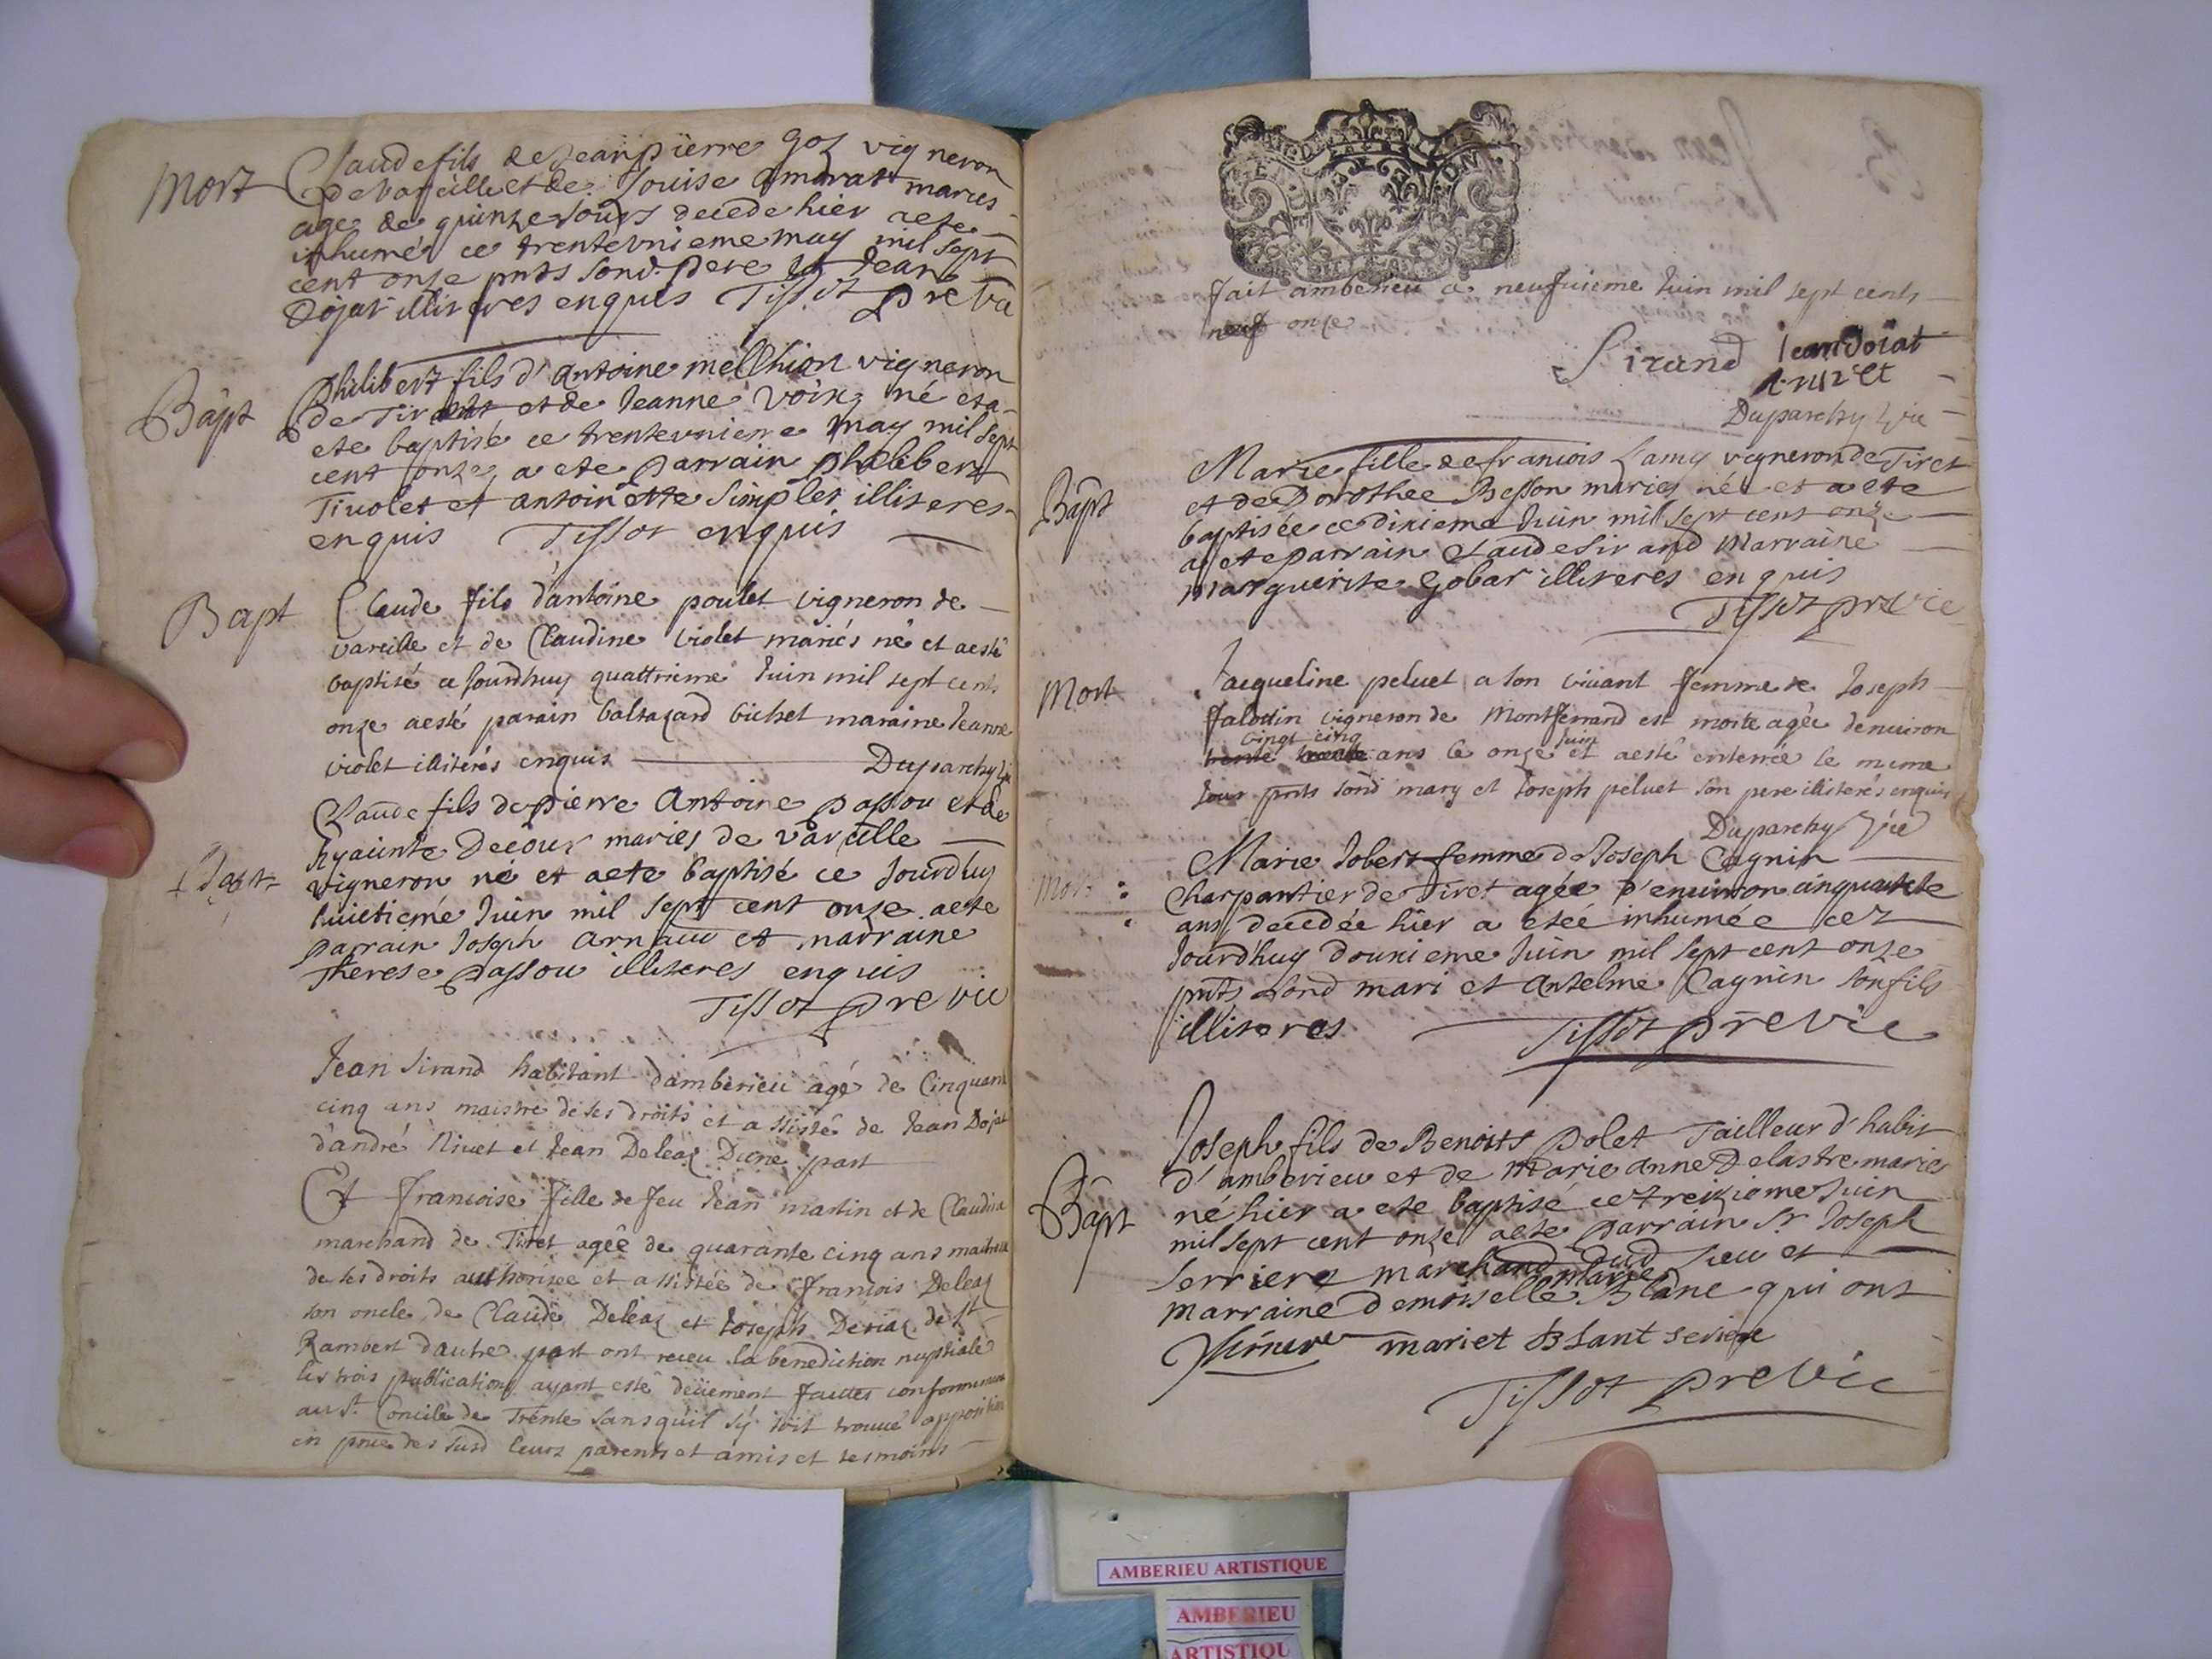 Mort
Claude fils de Jeanpierre goz vigneron
de vareille et de Louise amarat maries
age de quinze Jours decede hier a ete
inhumér ce trentevnieme may mil sept
cent onze pnts sond. pere et Jean
Dojat illiteres enquis Tissot pre via
Bapt
philibert fils d'antoine mellhion vigneron
de Tiret et de Jeanne voix né et a
ete baptisé ce trentevnieme may mil sept
cent onze, a ete parrain philibert
Tiuolet et antoinette Simplet illiteres
enquis Tissot enquis
Bapt
Claude fils d'antoine poulet vigneron de
vareille et de Claudine violet mariés né et aesté
baptisé ce Jourdhuy quattrieme Juin mil sept cents
onze aesté parain baltazard bichet maraine Jeanne
violet illiterés enquis Duparchy vic
Bapt
Claude fils de pierre Antoine passou et de
hyacinte Decour maries de vareille
vigneron né et aete baptisé ce Jourdhuy
huictieme Juin mil sept cent onze aete
parrain Joseph arnaud et marraine
Therese passou illiteres enquis
Tissot pre vic
Jean Sirand habitant d'amberieu agé de Cinquante
cinq ans maistre de ses droits et assisté de Jean Dojat
d'andré Niuet et Jean Deleaz Dune part
Et francoise fille de feu Jean martin et de Claudine
marchand de Tiret ageé de quarante cinq ans maitresse
de ses droits authorisee et assistée de francois Deleaz
son oncle de Claude Deleaz et Joseph Deriaz de St
Rambert dautre part ont receu la benediction nuptiale
les trois publications ayant esté deüement faittes conformement
au St. Concile de Trente sans quil sy soit trouué apposition
en pnce des susd leurs parents et amis et tesmoins
fait amberieu ce neufuieme Juin mil sept cents
neuf onze
Sirand Jean doiat
A. niuet
Duparchy vic
Bapt
Marie fille de francois Lamy vigneron de Tiret
et de Dorothee Besson maries née et a ete
baptisée ce dixieme Juin mil sept cent onze
a ete parrain Claude Sirand Marraine
marguerite Gobar illiteres enquis
Tissot pre vic
Mort
Jacqueline peluet a son viuant femme de Joseph
falottin vigneron de Montferrand est morte agée denuiron
vingt cinq Juin
trente ans le onze et aesté enterrée le meme
Jour pnts sond mary et Joseph peluet son pere illiterés enquis
Duparchy vic
Mort
Marie Jobert femme de Joseph Cagnin
Charpantier de Tiret agée d'enuiron cinquante
ans decedée hier a eteé inhumée cez
Jourd'huy douxieme Juin mil sept cent onze
pnts sond mari et Antelme Cagnin son fils
illiteres Tissot pre vic
Bapt
Joseph fils de Benoits polet Tailleur d'habit
d'amberieu et de marie anne Delastre maries
né hier a ete baptisé ce treizieme Juin
mil sept cent onze aete parrain Sr Joseph
Serriere marchand dud lieu et
marie
marraine demoiselle Blanc qui ont
mariet Blant seriere
Tissot pre vic
AMBERIEU ARTISTIQUE
AMBERIEU
ARTISTIQU